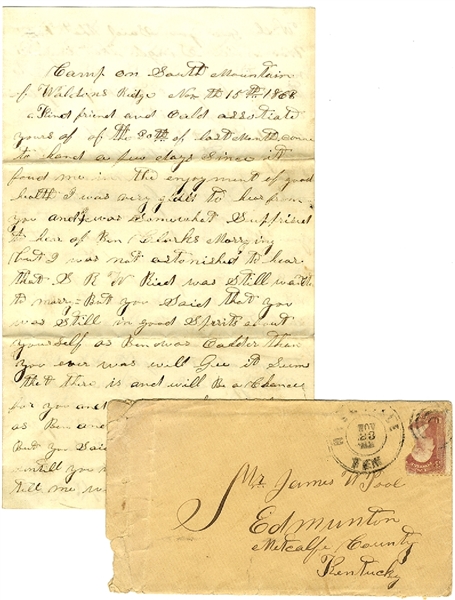 Camp on South Mountain
of Waldens Ridge Nov th 15th 1863
Kind friend and oald assotiate
yours of of th 20th of last Month come
to hand a few days since it
found me in the enjoyment of good
health I was very glad to hear from
you and I was Somewhat Supprised
to hear of Ben Clarks Marrying
but I was not astonished to hear
that J R W Ried was still
to marry = But you Said that you
was Still in good Sprits about
yourself as Ben was Oalder than
you ever was well Gee it Seems
that there is and will be a Chance
for you and
as Ben and
But you Said
untill you
tell me
AUG
23
TEN
Mr. James W Pool
Edmunton
Metcalfe County
Kentucky